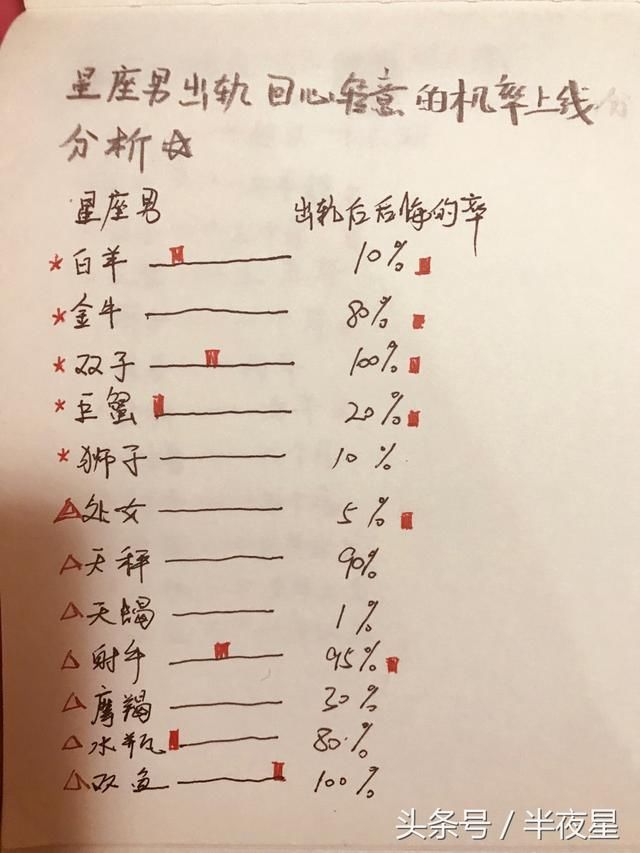 星座男出轨回心轻意的机率上线分
分析
星座男 出轨后后悔的率
白羊 10%
金牛 80%
双子 100%
巨蟹 20%
狮子 10%
处女 5%
天秤 90%
天蝎 1%
射手 95%
摩羯 30%
水瓶 80%
双鱼 100%
头条号 / 半夜星